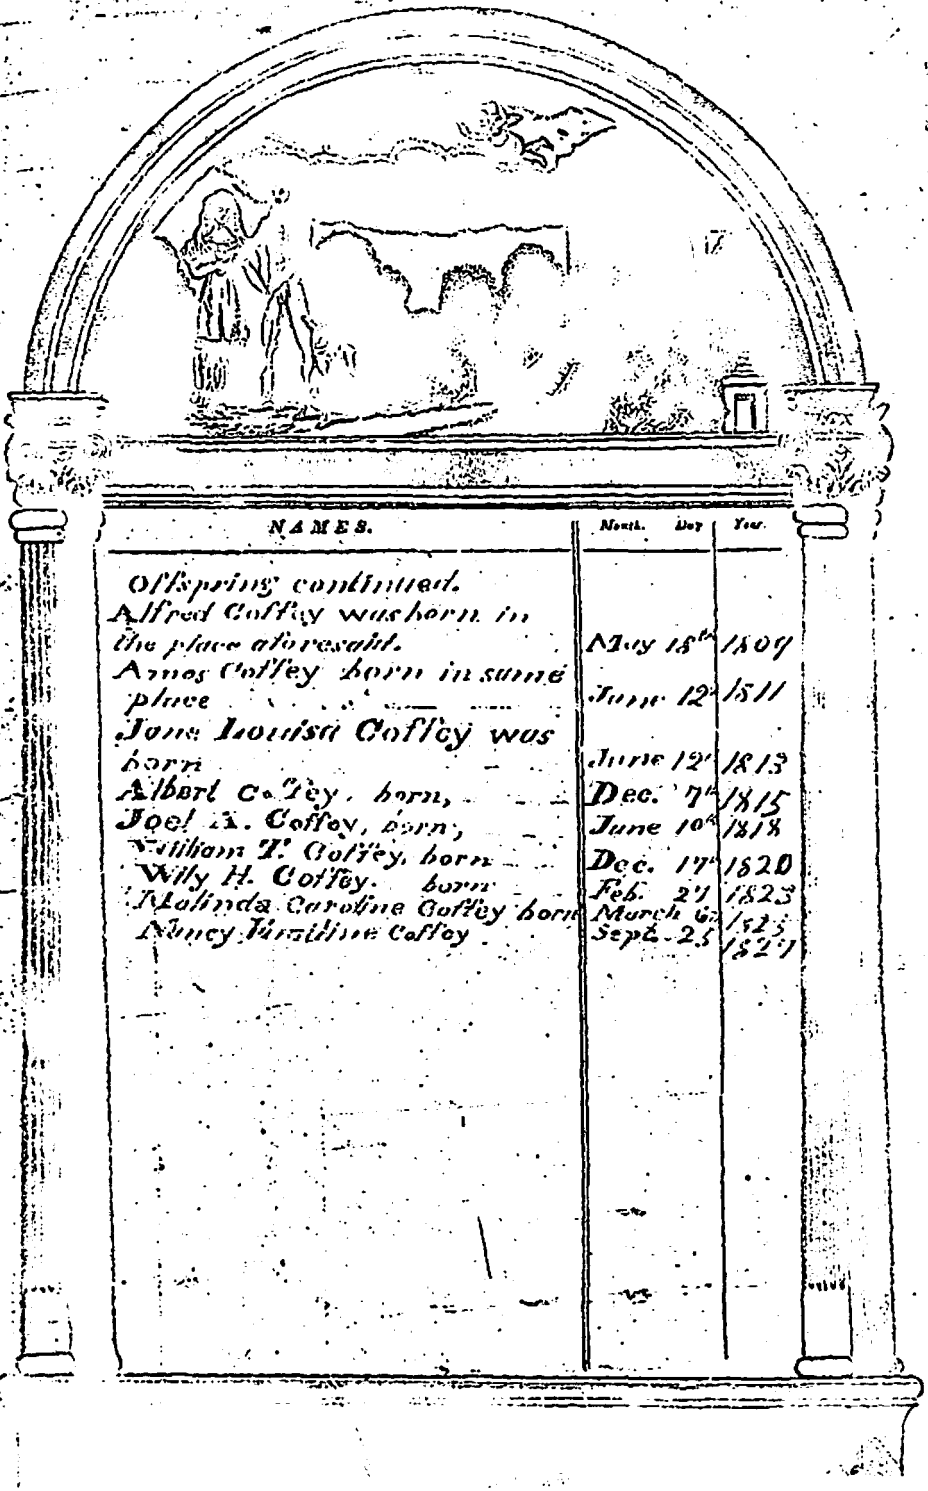 NAMES. Month. Day Year.
Offspring continued.
Alfred Coffey was born in
the place aforesaid. May 18th 1809
Amos Coffey born in same
place June 12th 1811
Jane Louisa Coffey was
born June 12th 1813
Albert Coffey, born, Dec. 7th 1815
Joel A. Coffey, born, June 10th 1818
William T. Coffey, born Dec. 17th 1820
Wily H. Coffey. born Feb. 27 1823
Malinda Caroline Coffey born March 6 1825
Nancy Coffey Sept. 25 1827